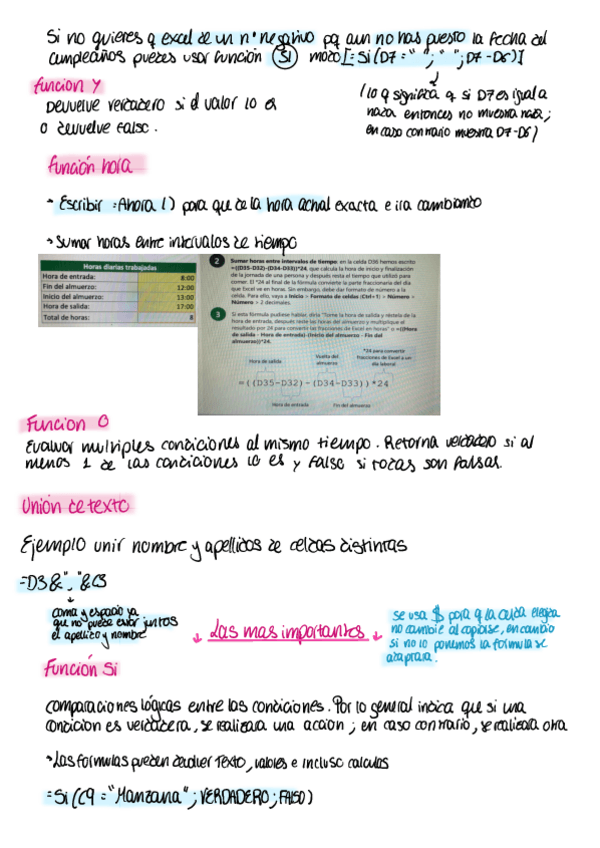 Si no quieres q excel de un nº negativo pq aun no has puesto la fecha del
cumpleaños puedes usar función Si modo [=Si(D7=" "; " "; D7-D6)]
función Y
Devuelve verdadero si el valor lo es
o devuelve Falso.
(lo q significa q si D7 es igual a
nada entonces no muestra nada;
en caso contrario muestra D7-D6)
Función hora
• Escribir =Ahora () para que de la hora actual exacta e ira cambiando
• Sumar horas entre intervalos de tiempo
Horas diarias trabajadas
Hora de entrada: 8:00
Fin del almuerzo: 12:00
Inicio del almuerzo: 13:00
Hora de salida: 17:00
Total de horas: 8
2 Sumar horas entre intervalos de tiempo: en la celda D36 hemos escrito
=((D35-D32)-(D34-D33))*24, que calcula la hora de inicio y finalización
de la jornada de una persona y después resta el tiempo que utilizó para
comer. El *24 al final de la fórmula convierte la parte fraccionaria del día
que Excel ve en horas. Sin embargo, debe dar formato de número a la
celda. Para ello, vaya a Inicio > Formato de celdas (Ctrl+1) > Número >
Número > 2 decimales.
3 Si esta fórmula pudiese hablar, diría "Tome la hora de salida y réstela de la
hora de entrada, después reste las horas del almuerzo y multiplique el
resultado por 24 para convertir las fracciones de Excel en horas" o =((Hora
de salida - Hora de entrada)-(Inicio del almuerzo - Fin del
almuerzo))*24.
Hora de salida
Vuelta del
almuerzo
*24 para convertir
fracciones de Excel a un
día laboral
=((D35-D32)-(D34-D33))*24
Hora de entrada
Fin del almuerzo
Funcion O
Evaluar multiples condiciones al mismo tiempo. Retorna verdadero si al
menos 1 de las condiciones lo es y Falso si todas son falsas.
Unión de texto
Ejemplo unir nombre y apellidos de celdas distintas
=D3&", "&C3
coma y espacio ya
que no puede estar juntos
el apellido y nombre
↓ Las mas importantes ↓
se usa $ para q la celda elegida
no cambie al copiarse, en cambio
si no lo ponemos la formula se
adaptara.
Función Si
comparaciones lógicas entre las condiciones. Por lo general indica que si una
condicion es verdadera, se realizara una accion; en caso contrario, se realizara otra
• Las formulas pueden devolver Texto, valores e incluso calculos
=Si(C9="Manzana"; VERDADERO; FALSO)